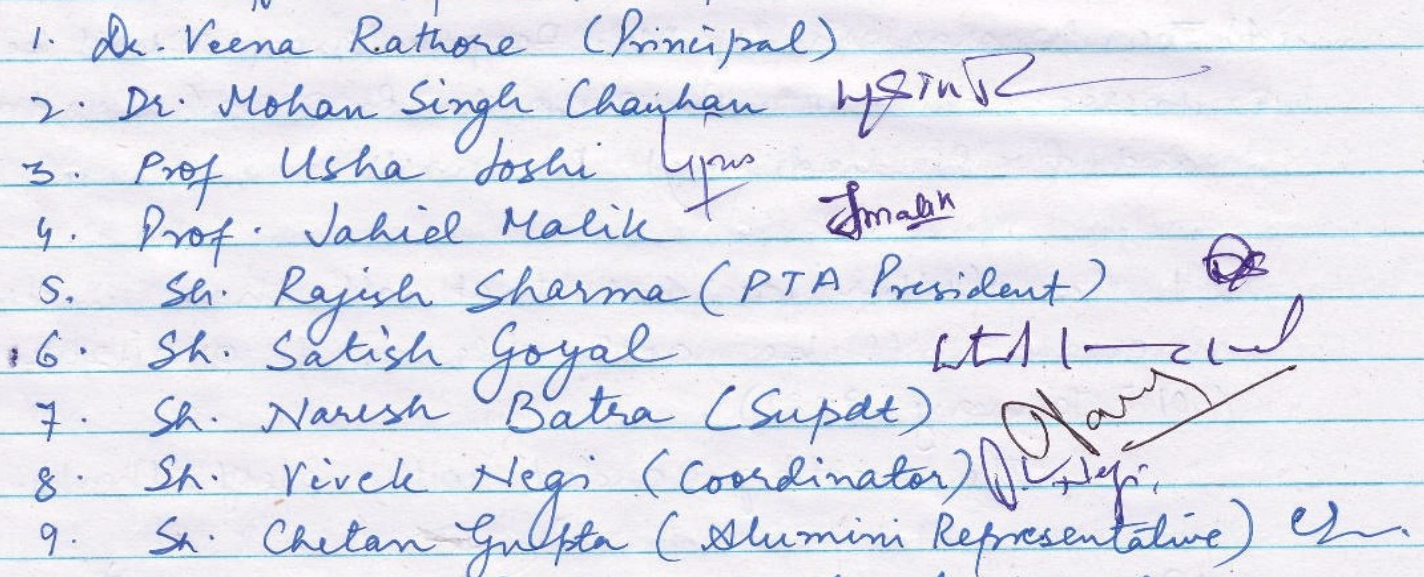 1. Dr. Veena Rathore (Principal)
2. Dr. Mohan Singh Chauhan
3. Prof Usha Joshi
4. Prof. Jahid Malik Jmalik
5. Sh. Rajish Sharma (PTA President)
6. Sh. Satish Goyal
7. Sh. Naresh Batra (Supdt)
8. Sh. Vivek Negi (Coordinator)
9. Sh. Chetan Gupta (Alumini Representative)